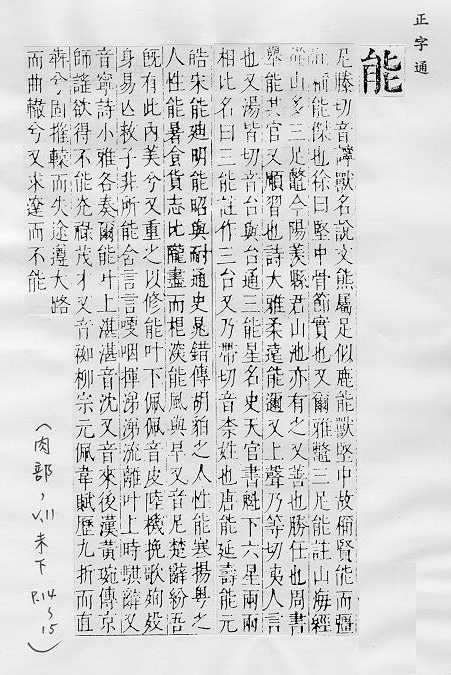 正字通
能
尼滕切音譨獸名說文熊屬足似鹿能獸堅中故稱賢能而彊
壯稱能傑也徐曰堅中骨節實也又爾雅鼈三足能註山海經
從山多三足鼈今陽羨縣君山池亦有之又善也勝任也周書
舉能其官又順習也詩大雅柔遠能邇又上聲乃等切夷人言
也又湯皆切音台與台通三能星名史天官書魁下六星兩兩
相比名曰三能註作三台又乃帶切音柰姓也唐能延壽能元
皓宋能迪明能昭與耐通史晁錯傳胡貉之人性能寒揚粵之
人性能暑食貨志比隴盡而棍淡能風與旱又音尼楚辭紛吾
旣有此內美兮又重之以修能叶下佩佩音皮陸機挽歌殉歿
身易亾救子非所能含言言哽咽揮涕涕流離叶上時騏辭又
音寧詩小雅各奏爾能叶上湛湛音沈又音來後漢黃琬傳京
師謠欲得不能光祿茂才又音柳宗元佩韋賦歷九折而直
犇兮固推轅而失途遵大路
而曲轍兮又求達而不能
(肉部,V.11 未下 P.14~15)